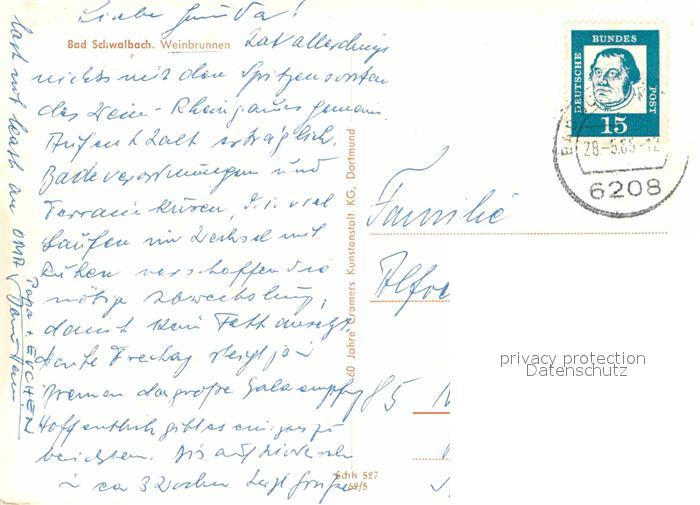 Liebe
Bad Schwalbach. Weinbrunnen
hat allerdings
nichts mit den Spitzensorten
des Wein-Rheingaues gemein.
Aufenthalt erträglich.
Badeverordnungen und
Terrainkuren, d.i. viel
Laufen im Wechsel mit
Ruhen verschaffen die
nötige Abwechslung,
damit kein Fett ansetzt.
Heute Freitag steigt ja in
Bremen der große Galaempfang
Hoffentlich gibt es einiges zu
berichten. Bis auf Wiedersehn
in ca 3 Wochen
last not least an OMA
Papa + EVCHEN
60 Jahre Cramers Kunstanstalt KG, Dortmund
Schh 527
62/5
DEUTSCHE BUNDES POST
15
28-5.65-12
6208
Familie
Alfre
85
privacy protection
Datenschutz